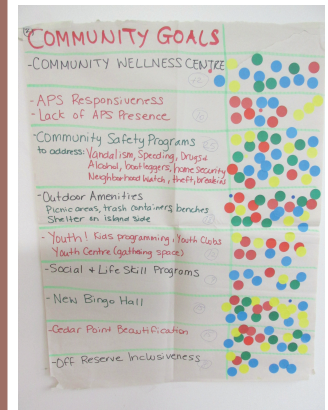 COMMUNITY GOALS
-COMMUNITY WELLNESS CENTRE
-APS Responsiveness
-Lack of APS Presence
-Community Safety Programs
to address: Vandalism, Speeding, Drugs+
Alcohol, bootleggers, home Security
Neighborhood Watch, theft, breakins
-Outdoor Amenities
Picnic areas, trash containers, benches
Shelter on island side
-Youth! Kids programming, Youth Clubs
Youth Centre (gathering space)
-Social + Life Skill Programs
-New Bingo Hall
-Cedar Point Beautification
-Off Reserve Inclusiveness